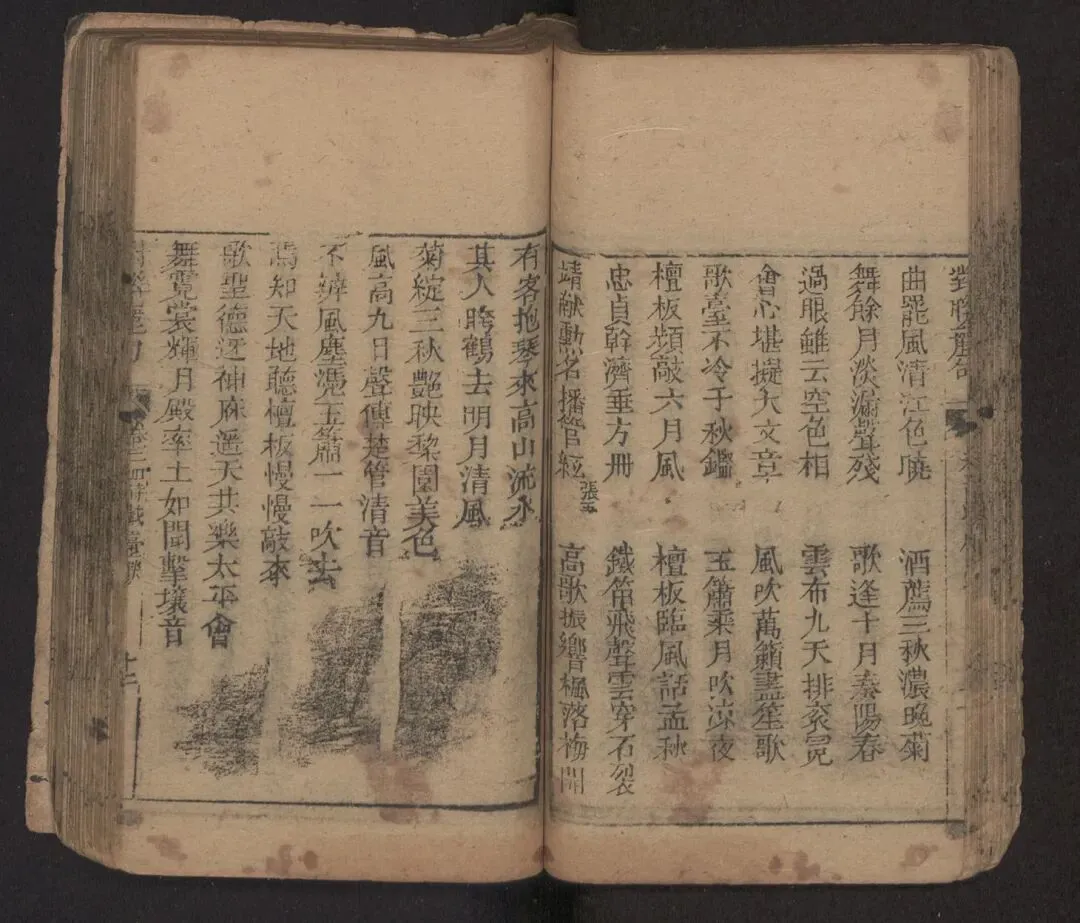 曲罷風清江色曉 酒薦三秋濃晚菊
舞餘月淡漏聲殘 歌逢十月奏陽春
過眼雖云空色相 雲布九天排衮冕
會心堪擬大文章 風吹萬籟盡笙歌
歌臺不冷千秋鑑 玉簫乘月吹涼夜
檀板頻敲六月風 檀板臨風話孟秋
忠貞幹濟垂方冊 鐵笛飛聲雲穿石裂
靖獻勳名播管絃 高歌振響楓落梅開
有客抱琴來高山流水
其人跨鶴去明月清風
菊綻三秋艷映梨園美色
風高九日聲傳楚管清音
不辨風塵憑玉簫一一吹去
焉知天地聽檀板慢慢敲來
歌聖德迓神庥遥天共樂太平會
舞霓裳輝月殿率土如聞擊壤音
卷三
十三